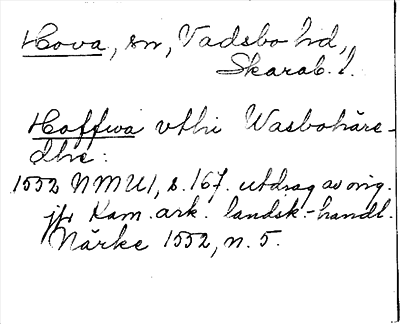 Hova, sn, Vadsbo hd,
Skarab. l.
Hoffwa vthi Wasbohäre-
dhe:
1552 NMU1, s. 167. utdrag av orig.
jfr Kam. ark. landsk.-handl.
Närke 1552, n. 5.